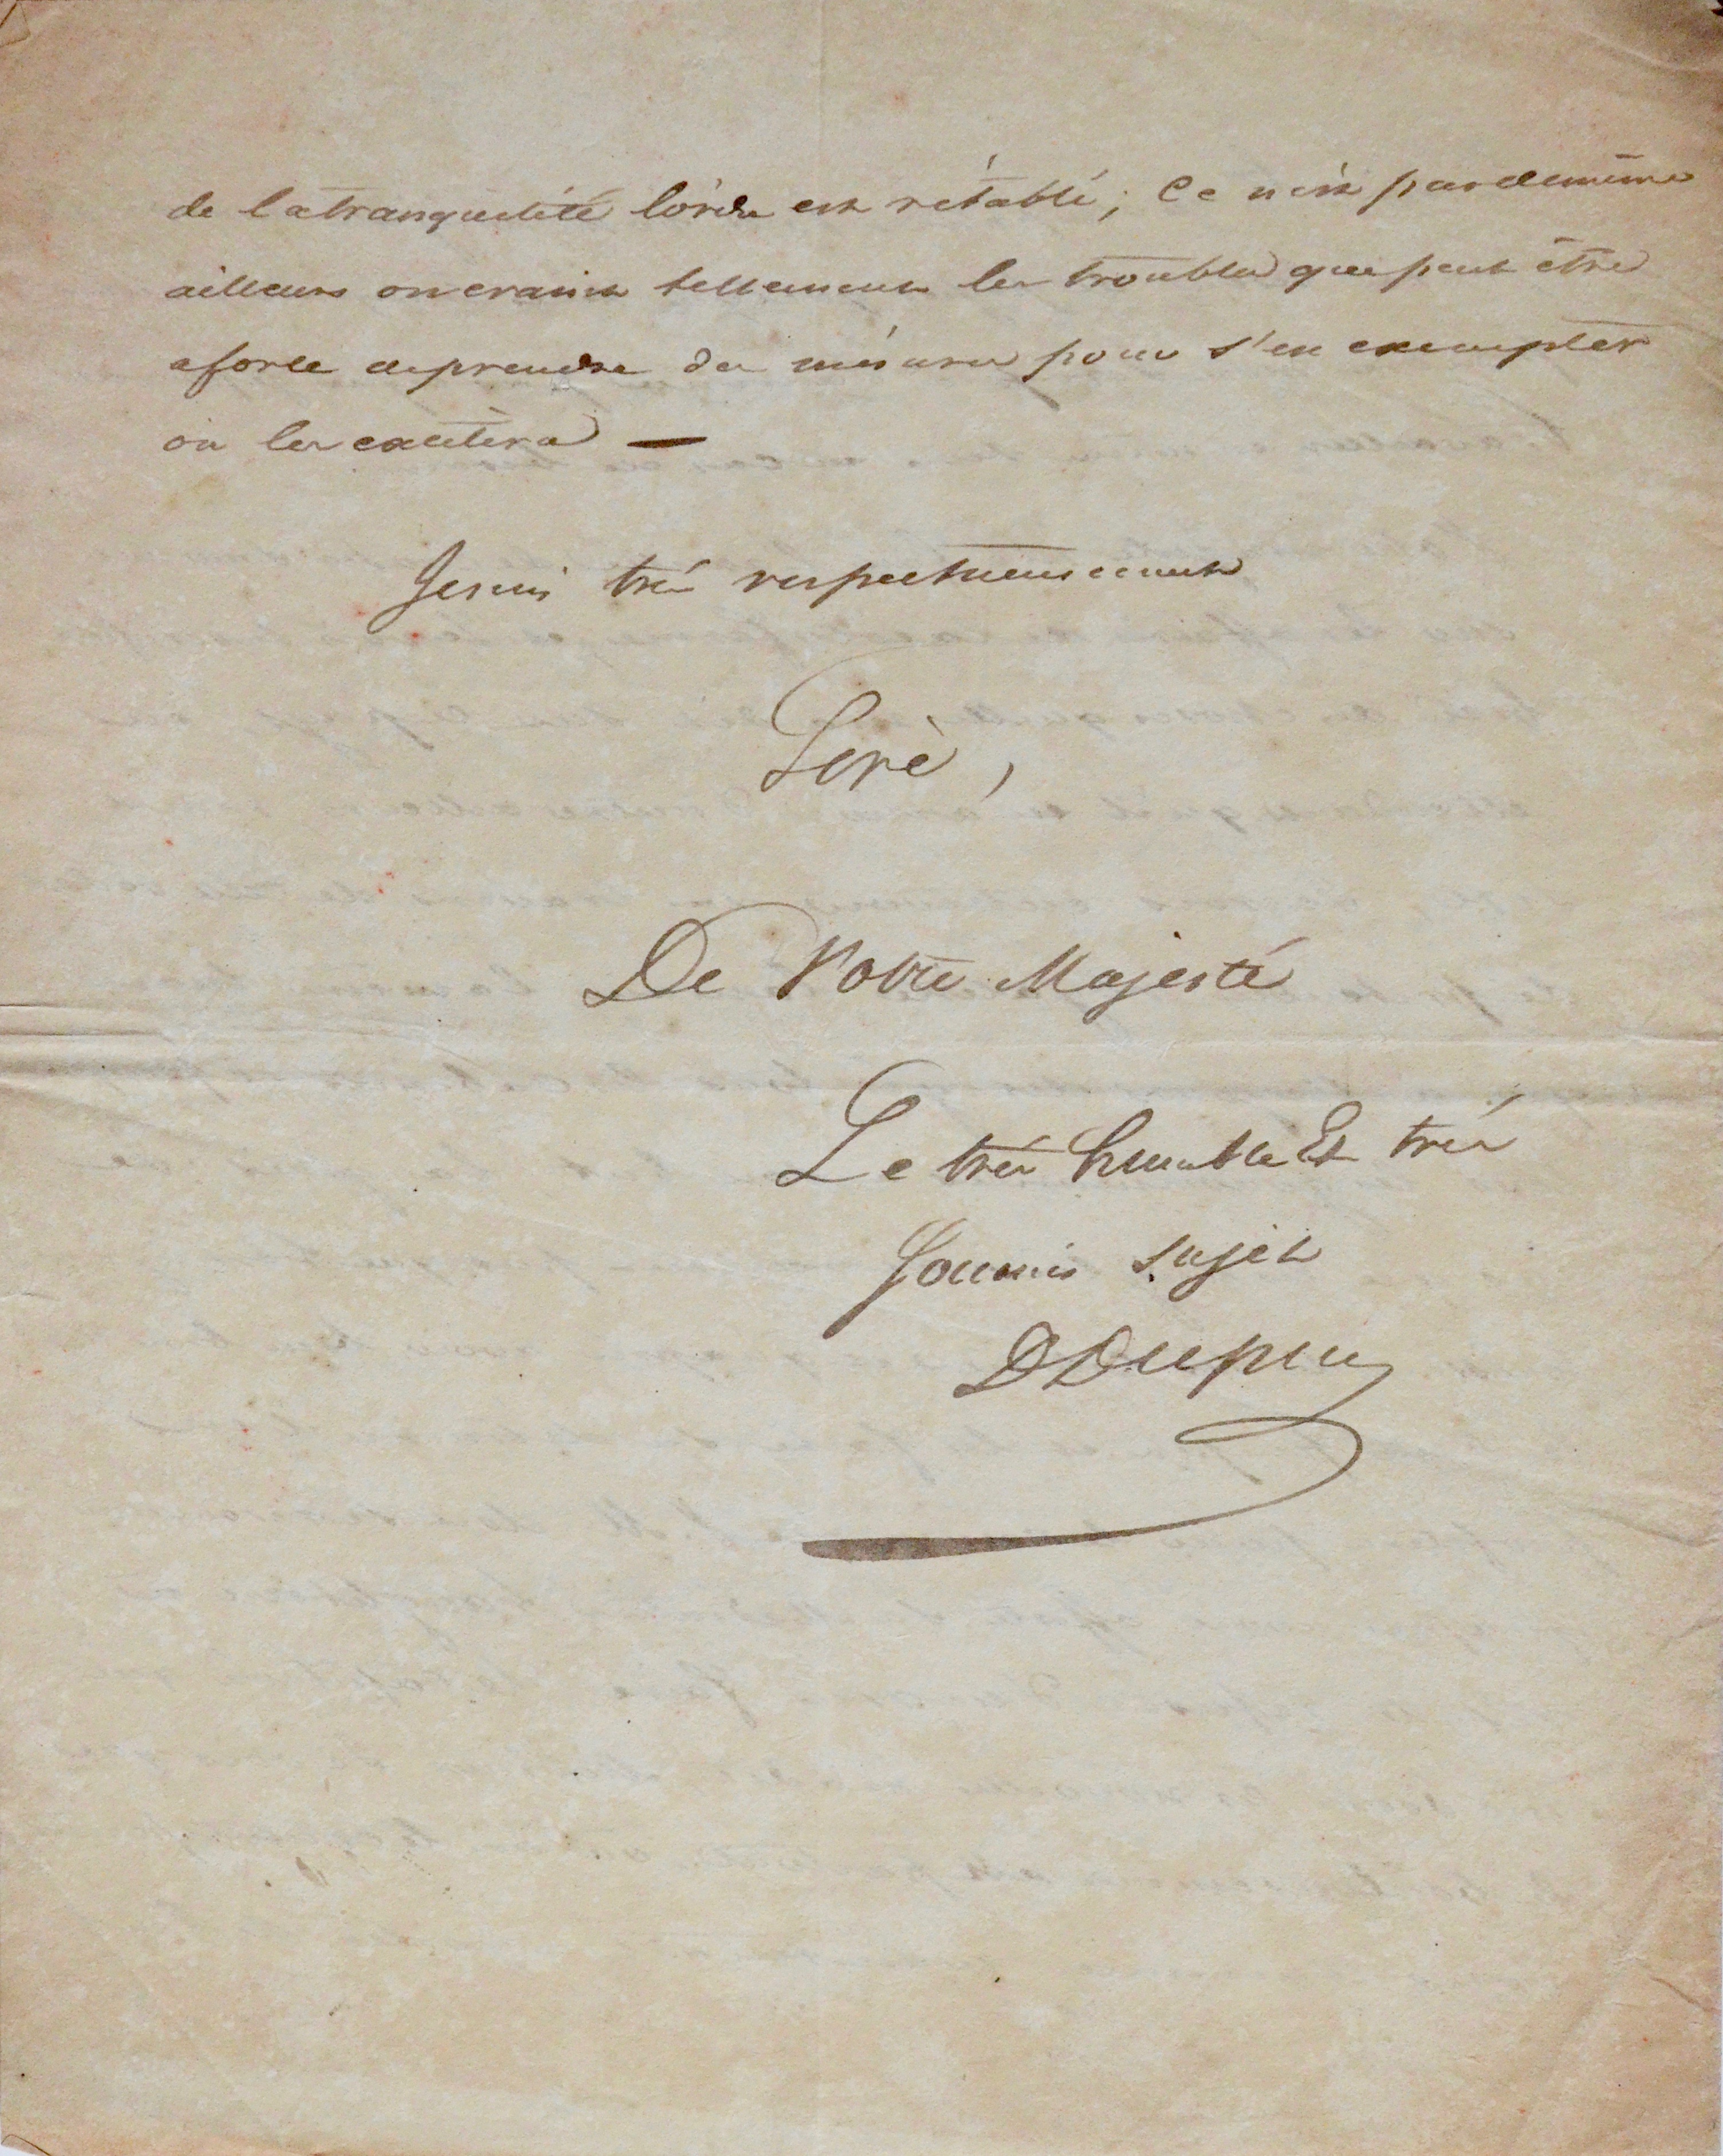 de la tranquilité l'ordre est rétabli; Ce n'est pas de même
ailleurs on craint tellement les troubles que peut être
a force de prendre des mésures pour s'en exempter
on les excitera —
Je suis très respectueusement
Sire,
De Votre Majesté
Le très humble Et très
Soumis sujet
D Dupuy